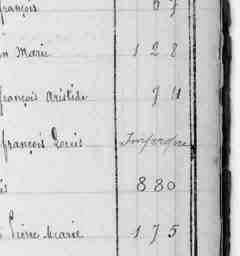 françois 67
in Marie 128
françois Aristide 74
françois Louis
is 880
Pierre Marie 175